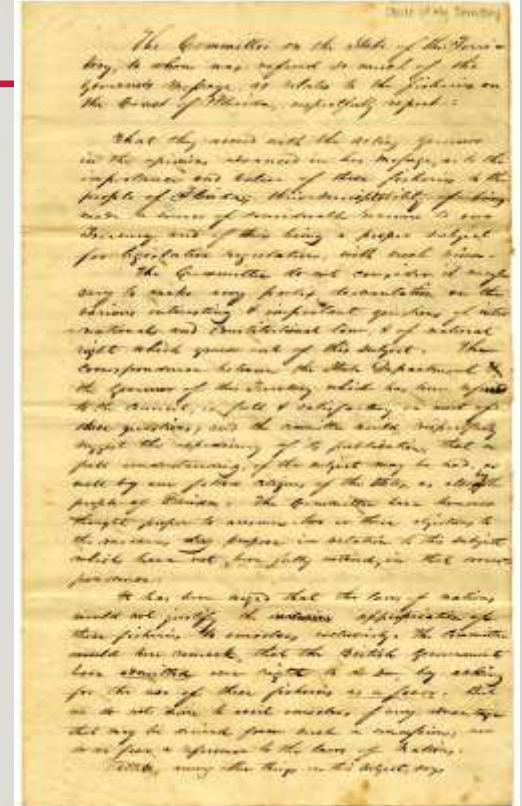 State of the Territory
The Committee on the State of the Terri-
tory, to whom was referred so much of the
Governors Message, as relates to the fisheries on
the Coast of Florida, respectfully report:
That they accord with the acting Governor
in the opinions advanced in his Message, as to the
importance and nature of these fisheries to the
people of Florida, their susceptibility of being
made a source of considerable revenue to our
Treasury and of their being a proper subject
for legislative regulation, with such view.
The Committee do not consider it neces-
sary to make any dissertation on the
various interesting & important questions of inter
national and Constitutional law, & of natural
right which grow out of this subject. The
correspondence between the State Department &
the Governor of this Territory which has been referred
to the Council, is full & satisfactory on most of
these questions, and the Committee would respectfully
suggest the expediency of its publication, that a
full understanding of the subject may be had, as
well by our fellow citizens of the States, as by the
people of Florida. The Committee have however
thought proper to answer two or three objections to
the measures they propose in relation to this subject
which have not been fully noticed in that corres
pondence.
It has been urged that the laws of nations
would not justify the appropriation of
these fisheries to ourselves exclusively. The Committee
would here remark, that the British Government
have admitted our right to do so, by asking
for the use of these fisheries as a favor. But
we do not have to avail ourselves of any advantage
that may be derived from such a concession, nor
do we fear a reference to the laws of Nations.
among other things on this subject, says